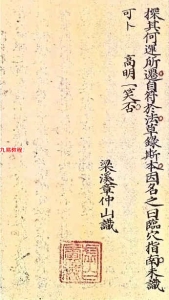 探其何運所遇自符於法草錄斯本因名之曰臨穴指南未識
可卜　高明一笑否
梁溪章仲山識
九鼎教程